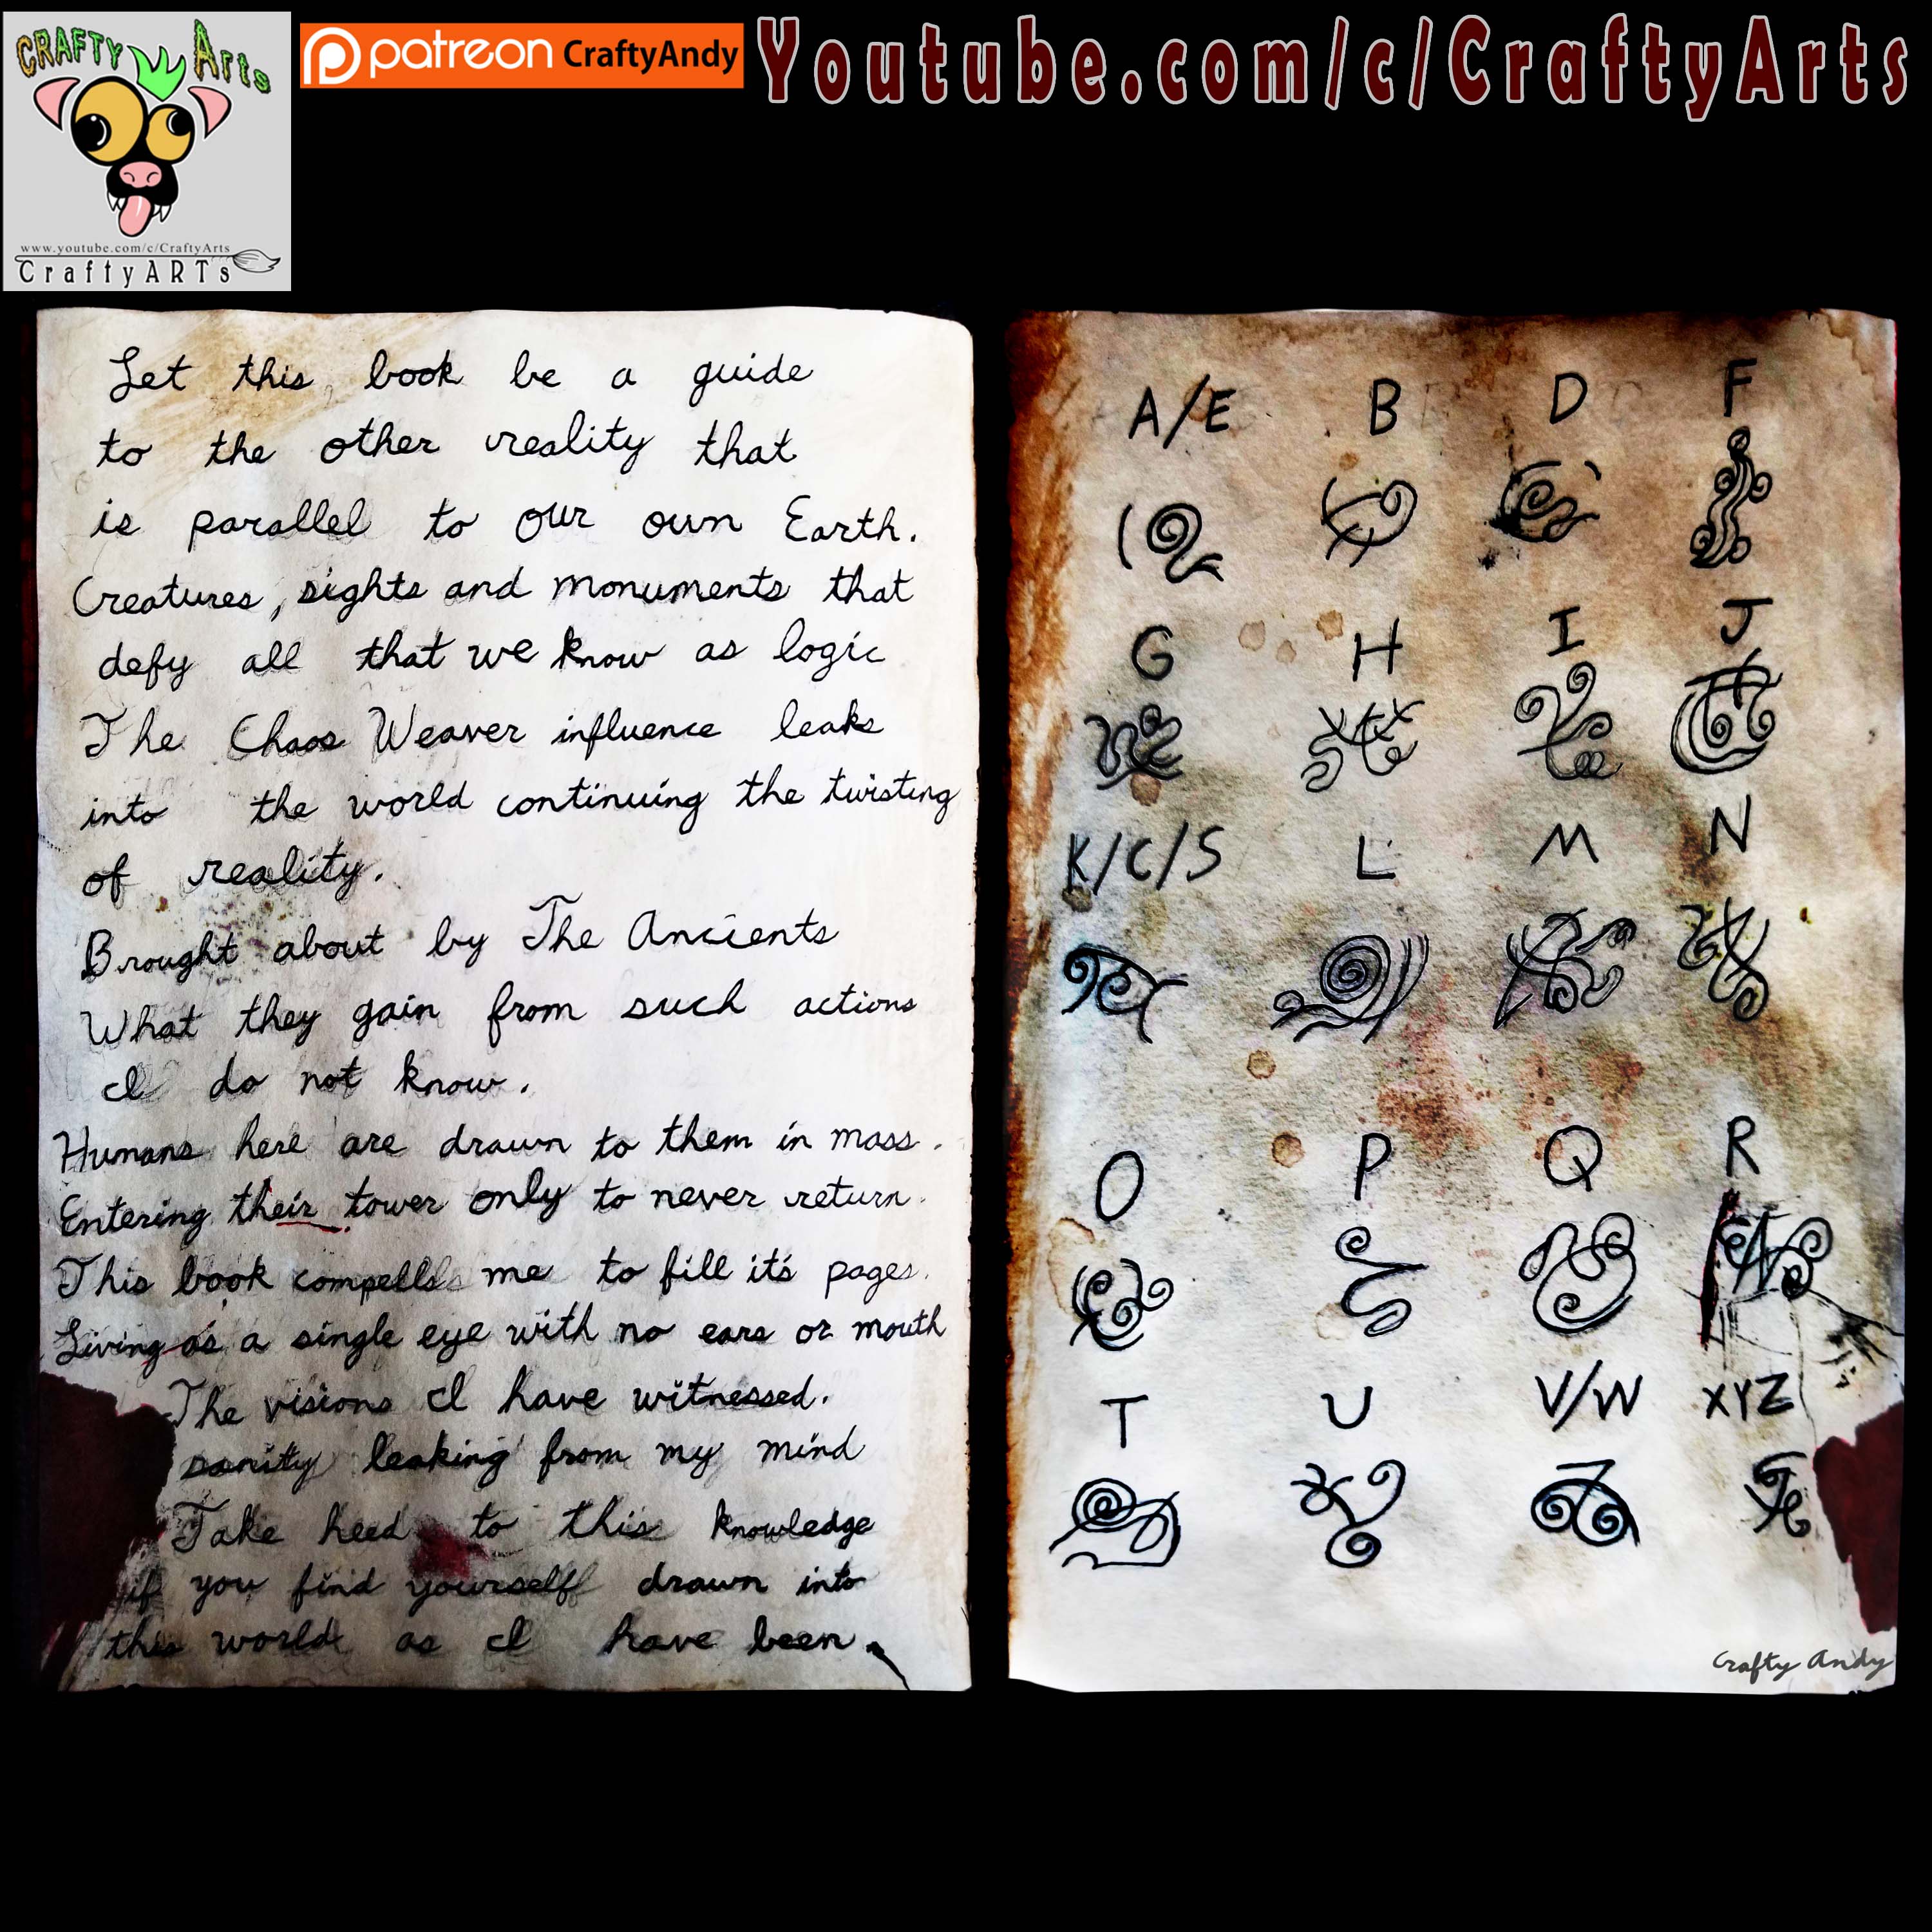 CRAFTY Arts
www.youtube.com/c/CraftyArts
CraftyARTs
patreon CraftyAndy
Youtube.com/c/CraftyArts
Let this book be a guide
to the other reality that
is parallel to our own Earth.
Creatures, sights and monuments that
defy all that we know as logic
The Chaos Weaver influence leaks
into the world continuing the twisting
of reality.
Brought about by The Ancients
What they gain from such actions
I do not know.
Humans here are drawn to them in mass.
Entering their tower only to never return.
This book compells me to fill it's pages.
Living as a single eye with no ears or mouth
The visions I have witnessed.
sanity leaking from my mind
Take heed to this knowledge
if you find yourself drawn into
this world as I have been.
A/E B D F
G H I J
K/C/S L M N
O P Q R
T U V/W XYZ
Crafty Andy